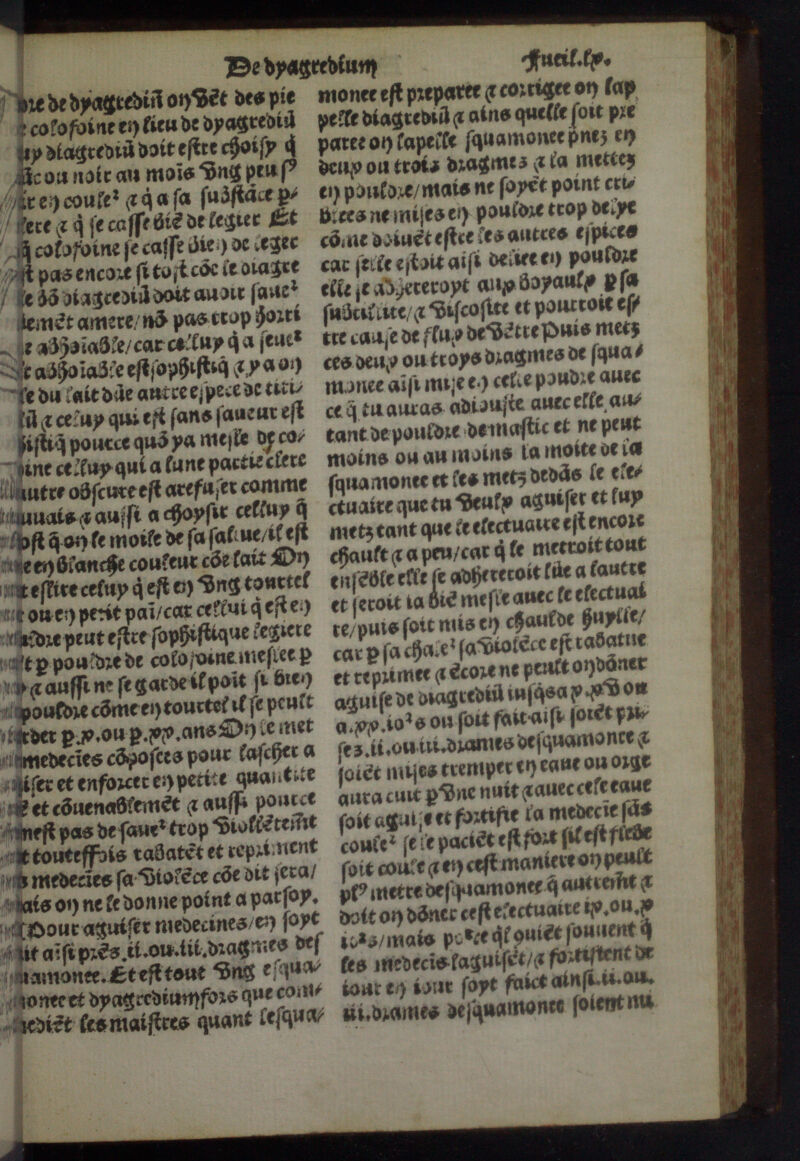 De dyagredium
Fueil.lx.
bre de dyagrediũ on vẽt des pie
colofoine en lieu de dyagrediũ
diagrediũ doit estre choisy q̃
ou noir au moīs vng peu
en coule² ⁊ q̃ a sa substãce
⁊ q̃ se casse biẽ de legier Et
colofoine se casse biẽ de legec
pas encore si tost cõe le diagre
diagrediũ doit auoir saue²
lemẽt amere/nõ pas trop horri
adhoiable/car celluy q̃ a seue²
adhoiable est sophistiq̃ ⁊ y a on
du lait dũe autre espece de titi-
⁊ celuy qui est sans saueur est
pource quõ ya mesle de co-
celluy qui a lune partie clere
obscure est a refuser comme
⁊ aussi a choysir celluy q̃
q̃ on le moille de sa saliue/il est
en blanche couleur cõe lait On
eslire celuy q̃ est en vng tourtel
ou en petit paī/car cellui q̃ est en
peut estre sophistique legiere
p pouldre de colofoine meslee p
⁊ aussi ne se garde il poīt si bien
pouldre cõme en tourtel il se peult
p.x.ou p.xx.ans On le met
medecīes cõposees pour lascher a
et enforcer en petite quantite
et cõuenablemẽt ⁊ aussi pource
nest pas de saue² trop violẽtemt
touteffois rabatẽt et repriment
medecīes sa violẽce cõe dit sera/
on ne le donne point a par soy.
Pour aguiser medecines/en soyt
aīsi prẽs.ii.ou.iii.dragmes des
Et est tout vng esqua-
et dyagredium fors que com-
les maistres quant lesqua-
monee est preparee ⁊ corrigee on lap
pelle diagrediũ ⁊ ains quelle soit pre
paree on lapelle squamonee pnez en
deux ou trois dragmes ⁊ la mettez
en pouldre/mais ne soyẽt point cri-
blees ne mises en pouldre trop delye
cõme doiuẽt estre les autres espices
car selle estoit aīsi deliee en pouldre
elle se adhereroyt aux boyaulx p sa
subtilite/⁊ viscosite et pourroit es-
tre cause de flux de vẽtre Puis metz
ces deux ou troys dragmes de squa-
monee aīsi mise en celle poudre auec
ce q̃ tu auras adiouste auec elle au-
tant de pouldre de mastic et ne peut
moins ou au moins la moite de la
squamonee et les metz dedãs le ele-
ctuaire que tu veulx aguiser et luy
metz tant que le electuaire est encore
chault ⁊ a peu/car q̃ le mettroit tout
ensẽble elle se adhereroit lũe a lautre
et seroit ia biẽ mesle auec le electuai
re/puis soit mis en chaulde huylle/
car p sa chale² sa violẽce est rabatue
et reprimee ⁊ ẽcore ne peult on dõner
aguise de diagrediũ iusq̃s a p.xv ou
a.xx.io²s ou soit fait aīsi sorẽt pri-
ses.ii.ou iii.drames de squamonee ⁊
soiẽt mises tremper en eaue ou orge
aura cuit p vne nuit ⁊ auec celle eaue
soit aguise et fortifie la medecīe sãs
coule² se le paciẽt est fort sil est fieble
soit coule ⁊ en cest maniere on peult
pl⁹ mettre de squamonee q̃ autremt ⁊
doit on dõner cest electuaire ix.ou.x
io²s/mais pource ql ouiẽt souuent q̃
les medecīs laguisẽt/⁊ fortifient de
iour en iour soyt faict ainsi.ii.ou.
iii.drames de squamonee soient mi